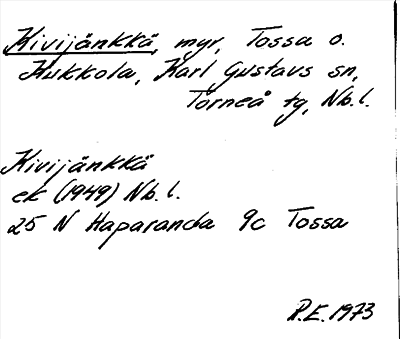 Kivijänkkä, myr, Tossa o.
Kukkola, Karl Gustavs sn,
Torneå tg, Nb.l.
Kivijänkkä
ek (1949) Nb.l.
25 N Haparanda 9c Tossa
P.E. 1973